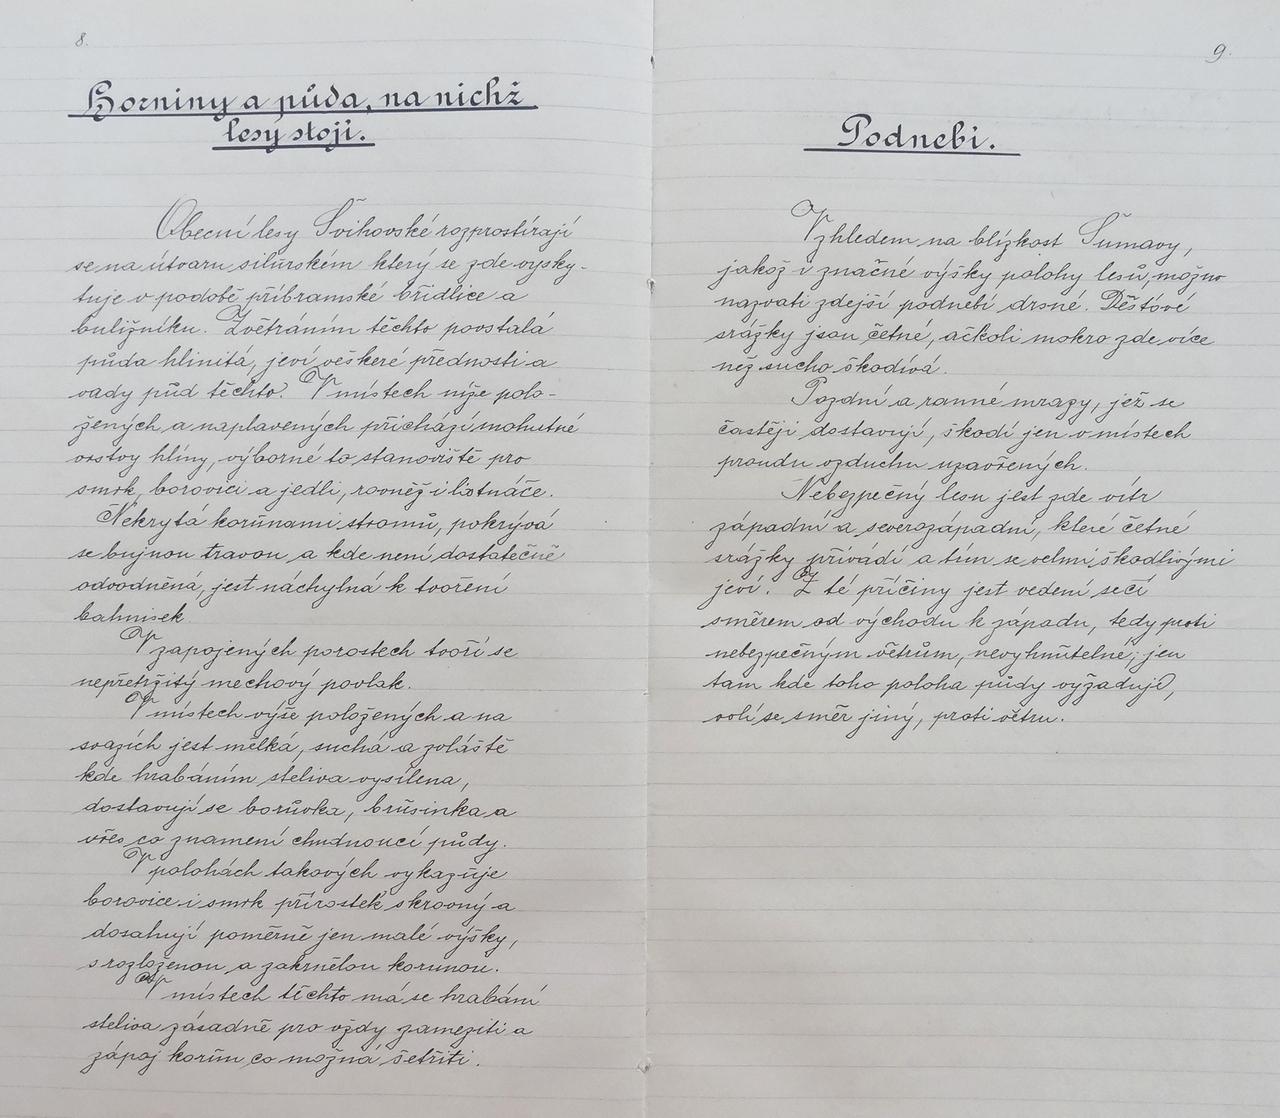 8.
Horniny a půda, na nichž
lesy stojí.
Obecní lesy Švihovské rozprostírají
se na útvaru silurském který se zde vysky-
tuje v podobě příbramské břidlice a
buližníku. Zvětráním těchto povstalá
půda hlinitá, jeví veškeré přednosti a
vady půd těchto. V místech níže polo-
žených a naplavených přichází mohutné
vrstvy hlíny, výborné to stanoviště pro
smrk, borovici a jedli, rovněž i listnáče.
Nekrytá korunami stromů, pokrývá
se bujnou travou a kde není dostatečně
odvodněná, jest náchylná k tvoření
bahnisek.
V zapojených porostech tvoří se
nepřetržitý mechový povlak.
V místech výše položených a na
svazích jest mělká, suchá a zvláště
kde hrabáním steliva vysílena,
dostavují se borůvka, brusinka a
vřes co znamení chudnoucí půdy.
V polohách takových vykazuje
borovice i smrk přírostek skrovný a
dosahují poměrně jen malé výšky,
s rozloženou a zakrnělou korunou.
V místech těchto má se hrabání
steliva zásadně pro vždy zameziti a
zápoj korun co možná šetřiti.
9.
Podnebí.
Vzhledem na blízkost Šumavy,
jakož i značné výšky polohy lesů, možno
nazvati zdejší podnebí drsné. Dešťové
srážky jsou četné, ačkoli mokro zde více
než sucho škodívá.
Pozdní a ranné mrazy, jež se
častěji dostavují, škodí jen v místech
proudu vzduchu uzavřených.
Nebezpečný lesu jest zde vítr
západní a severozápadní, které četné
srážky přivádí a tím se velmi škodlivými
jeví. Z té příčiny jest vedení sečí
směrem od východu k západu, tedy proti
nebezpečným větrům, nevyhnutelné; jen
tam kde toho poloha půdy vyžaduje,
volí se směr jiný, proti větru.